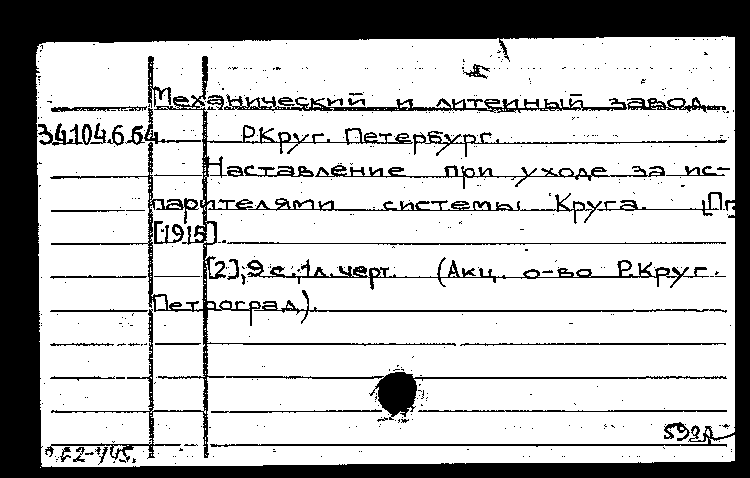 Механический и литейный завод
34.104.6.64. Р.Круг. Петербург.
Наставление при уходе за ис-
парителями системы Круга. [Пг
[1915].
[2], 9 с., 1 л. черт. (Акц. о-во Р.Круг.
Петроград).